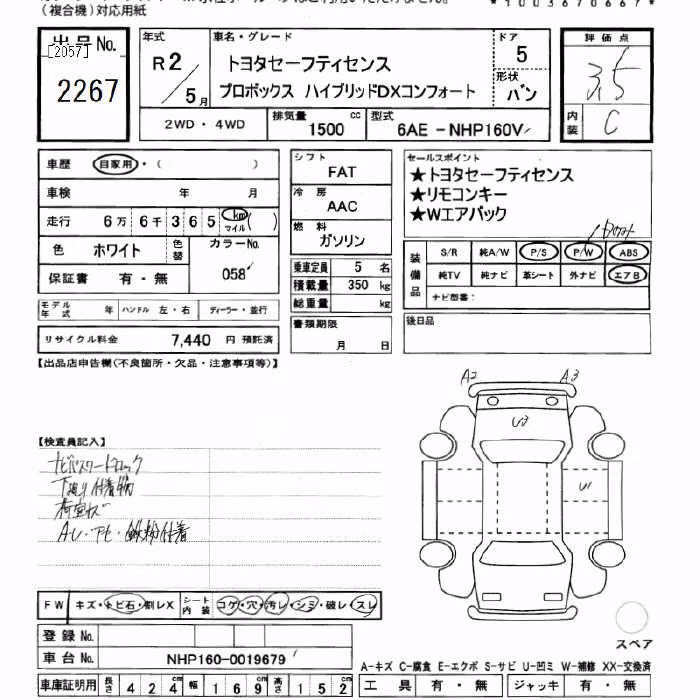 (複合機)対応用紙
*1003670667*
出品No.
[2057]
2267
年式
R2/5月
車名・グレード
トヨタセーフティセンス
プロボックス ハイブリッドDXコンフォート
ドア
5
形状
バン
評価点
3.5
内装
C
2WD・4WD
排気量 1500 cc
型式 6AE-NHP160V
車歴 自家用・( )
車検 年 月
走行 6万 6千 365 km マイル ( )
色 ホワイト 色替 カラーNo.
058
保証書 有・無
モデル年式 年 ハンドル 左・右 ディーラー・並行
リサイクル料金 7,440 円 預託済
シフト
FAT
冷房
AAC
燃料
ガソリン
乗車定員 5 名
積載量 350 kg
総重量 kg
書類期限
月 日
セールスポイント
★トヨタセーフティセンス
★リモコンキー
★Wエアバック
装備品
S/R 純A/W P/S P/W ABS
純TV 純ナビ 革シート 外ナビ エアB
ナビ型番:
後日品
【出品店申告欄(不良箇所・欠品・注意事項等)】
A2 A3
U3
U1
【検査員記入】
ナビパスワードロック
下廻り付着物
荷室キズ
FW キズ・トビ石・割レX シート内装 コゲ・穴・汚レ・シミ・破レ・スレ
登録No.
車台No. NHP160-0019679
スペア
A-キズ C-腐食 E-エクボ S-サビ U-凹ミ W-補修 XX-交換済
車庫証明用 長さ 424 幅 169 高さ 152
工具 有・無 ジャッキ 有・無